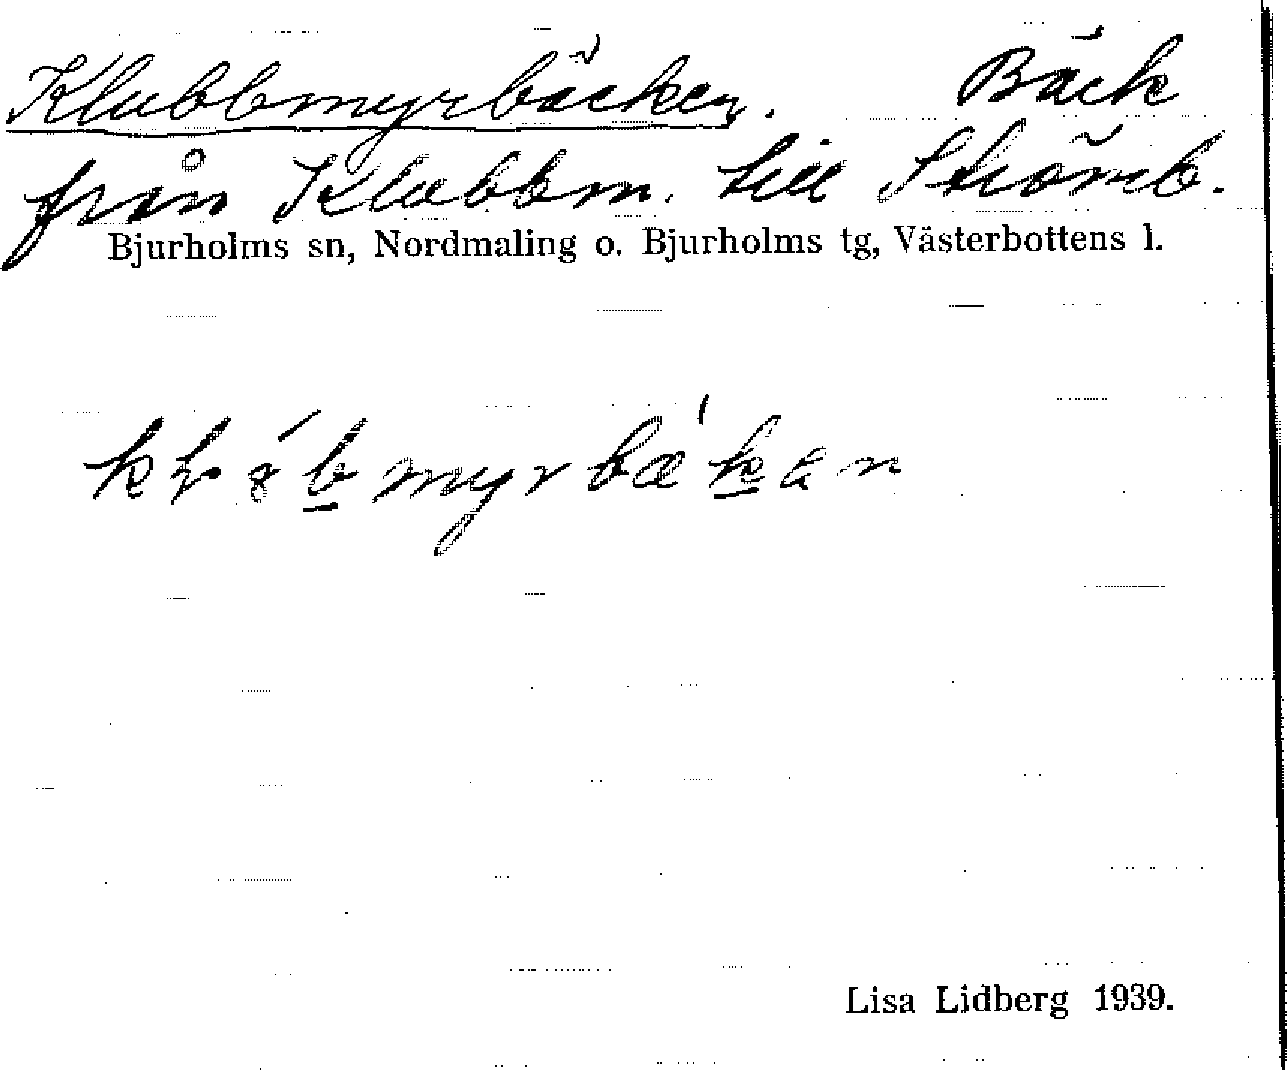 Klubbmyrbäcken. Bäck
från Klubbm. till Strömb.
Bjurholms sn, Nordmaling o. Bjurholms tg, Västerbottens l.
Lisa Lidberg 1939.